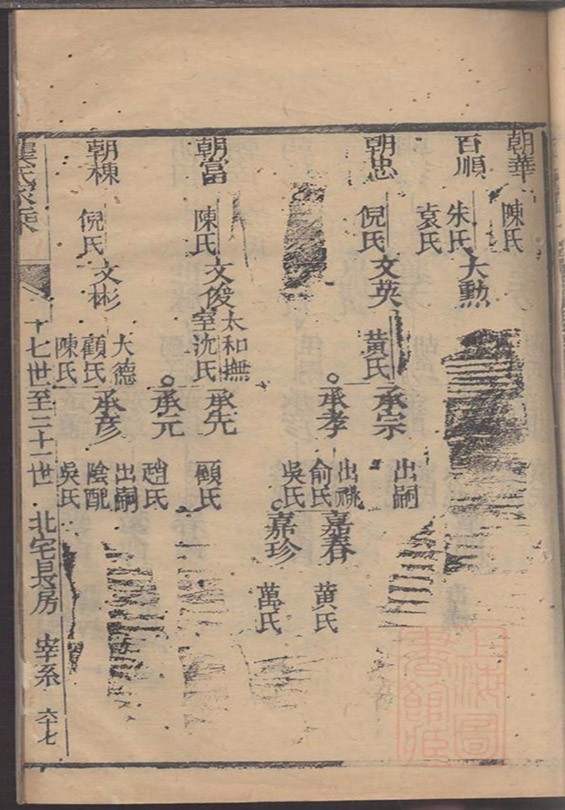 朝華
陳氏
百順
朱氏 大勲
袁氏
朝忠
倪氏 文英
黃氏 承宗
出嗣
承孝
出祧
俞氏 嘉春
黃氏
吳氏 嘉珍
萬氏
朝富
陳氏 文俊
太和撫
室沈氏 承先
顧氏
承元
趙氏
朝棟
倪氏 文彬
大德
顧氏 承彥
陳氏
出嗣
陰配
吳氏
十七世至二十一世 北宅長房 宰系 六十七
上海圖書館